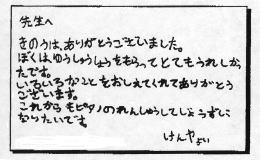 先生へ
きのうは、ありがとうございました。
ぼくは、ゆうしょうしょうをもらってとてもうれしかっ
たです。
いろいろなことをおしえてくれてありがとう
ございます。
これからもピアノのれんしゅうしてじょうずに
なりたいです。
けんや